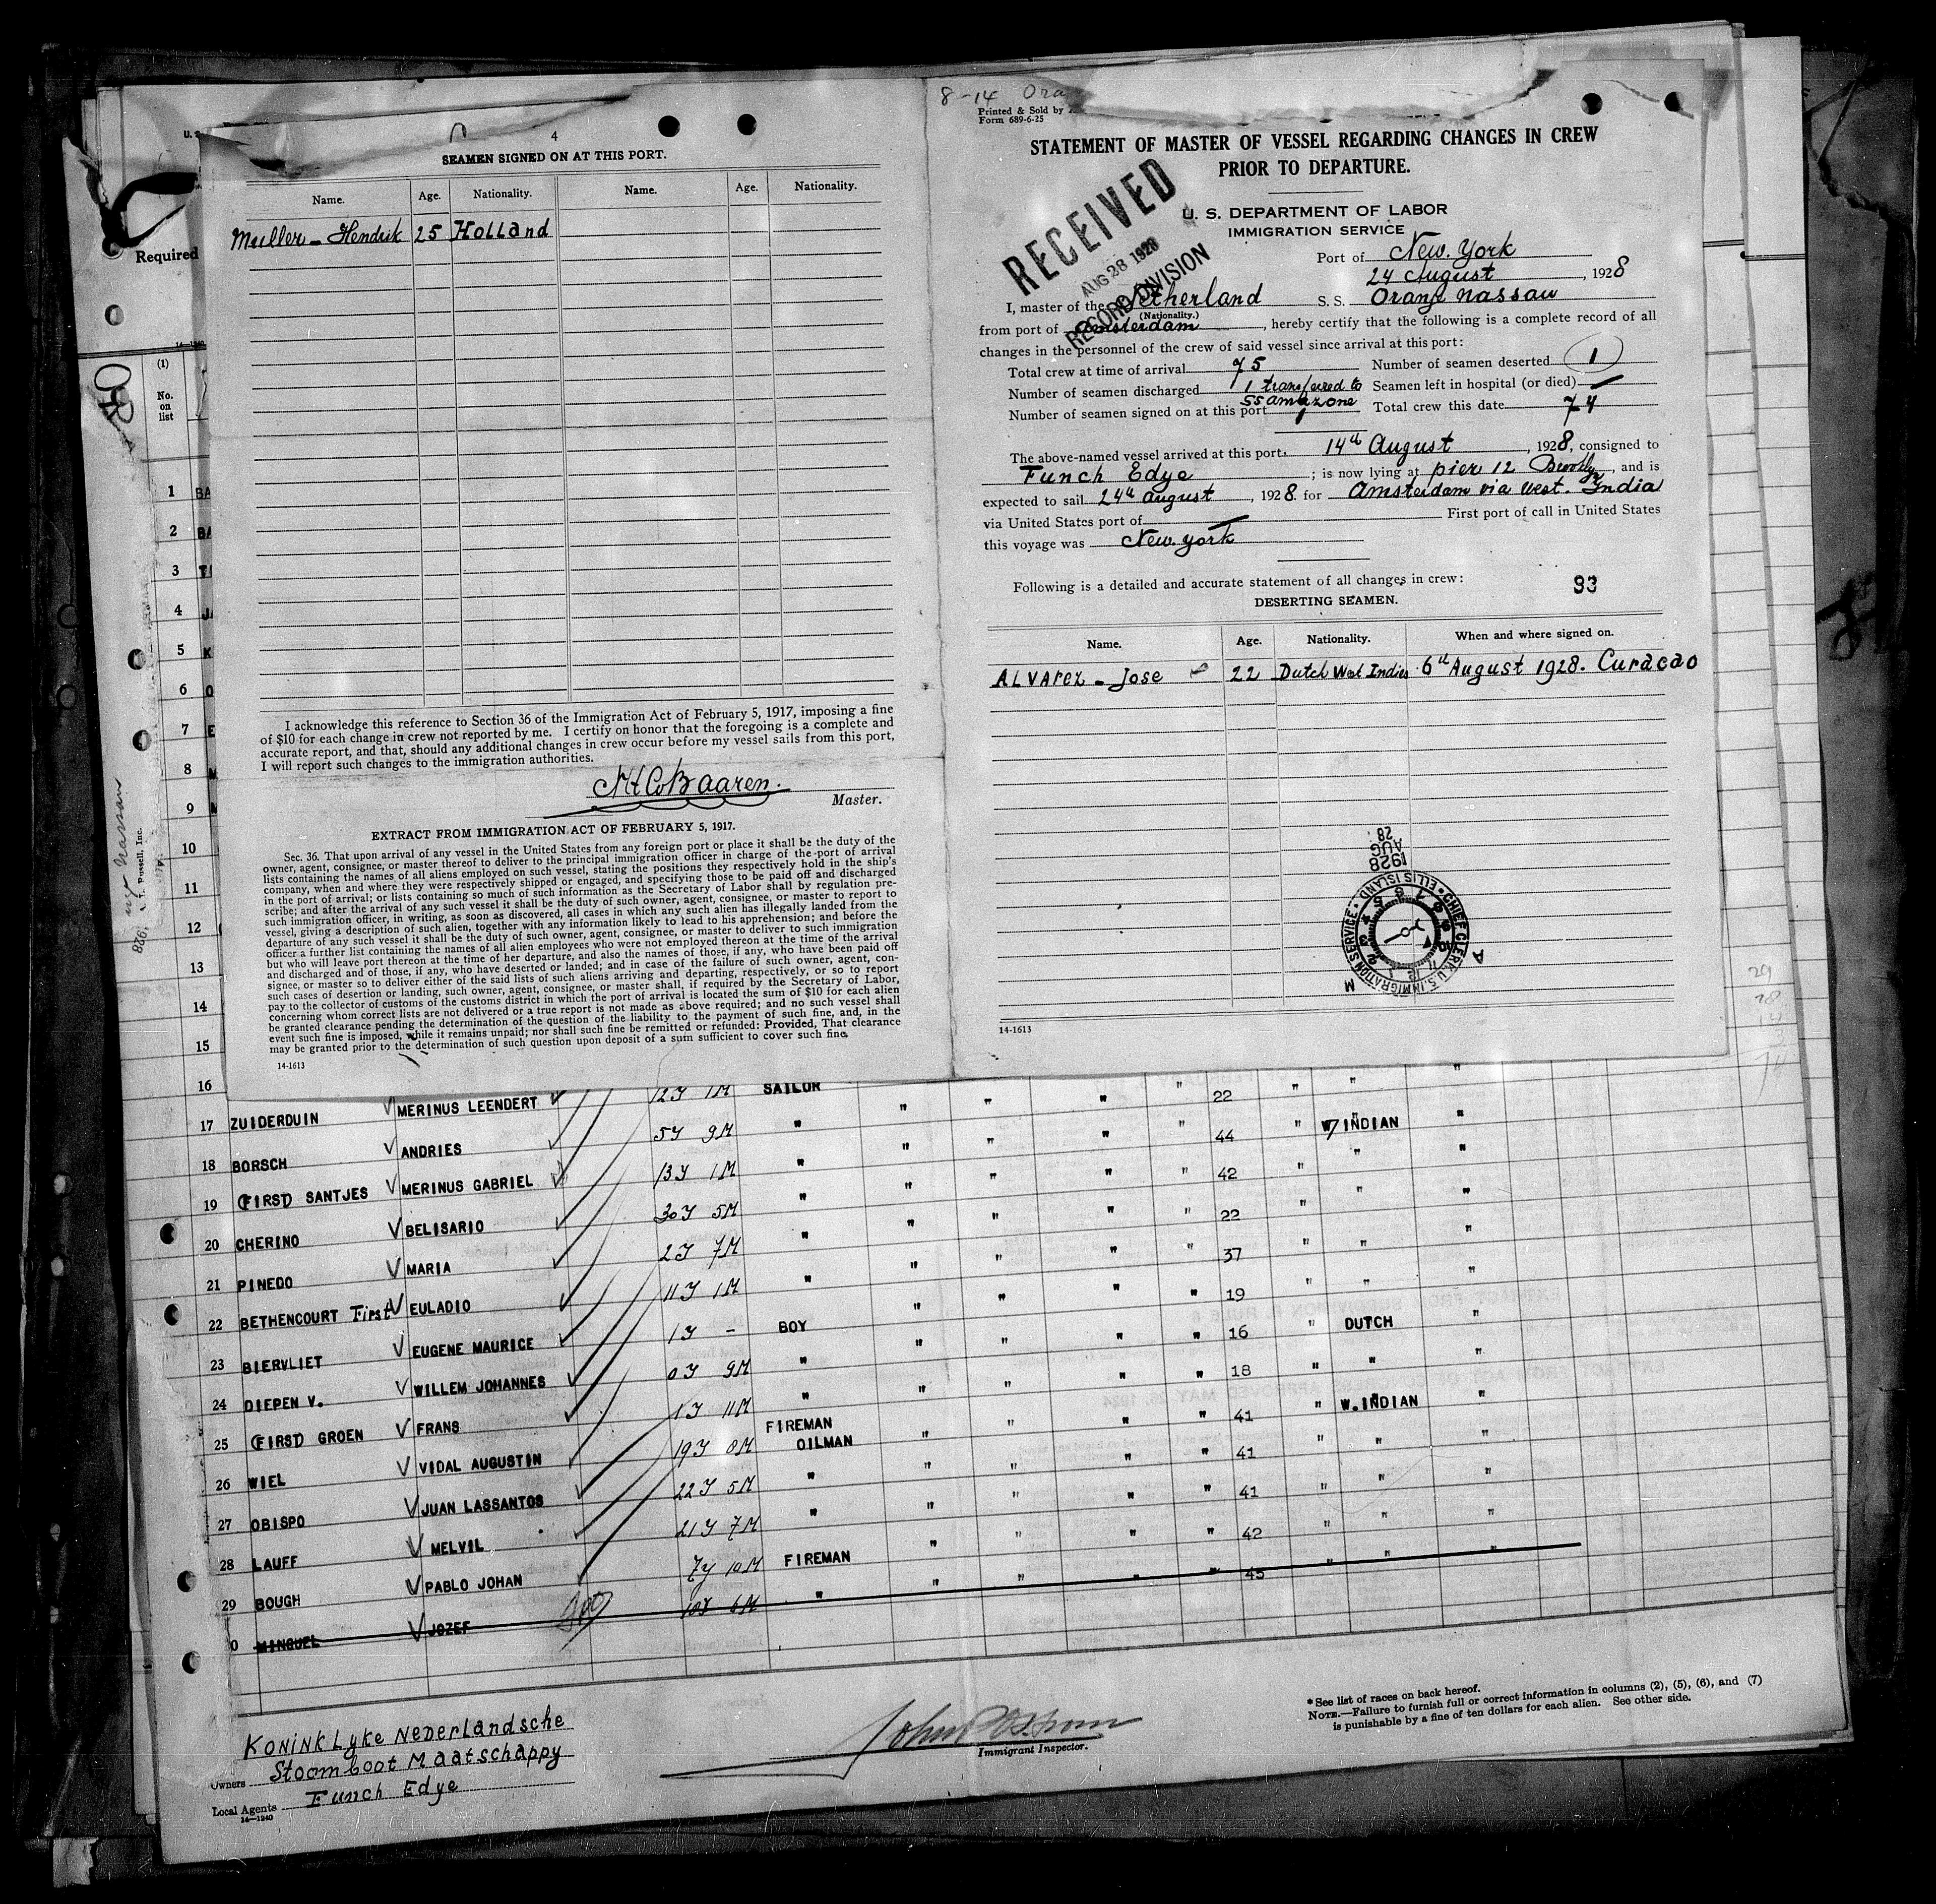 4
SEAMEN SIGNED ON AT THIS PORT.
Name. Age. Nationality. Name. Age. Nationality.
Muller - Hendrik 25 Holland
I acknowledge this reference to Section 36 of the Immigration Act of February 5, 1917, imposing a fine
of $10 for each change in crew not reported by me. I certify on honor that the foregoing is a complete and
accurate report, and that, should any additional changes in crew occur before my vessel sails from this port,
I will report such changes to the immigration authorities.
Baaren.
Master.
EXTRACT FROM IMMIGRATION ACT OF FEBRUARY 5, 1917.
Sec. 36. That upon arrival of any vessel in the United States from any foreign port or place it shall be the duty of the
owner, agent, consignee, or master thereof to deliver to the principal immigration officer in charge of the port of arrival
lists containing the names of all aliens employed on such vessel, stating the positions they respectively hold in the ship's
company, when and where they were respectively shipped or engaged, and specifying those to be paid off and discharged
in the port of arrival; or lists containing so much of such information as the Secretary of Labor shall by regulation pre-
scribe; and after the arrival of any such vessel it shall be the duty of such owner, agent, consignee, or master to report to
such immigration officer, in writing, as soon as discovered, all cases in which any such alien has illegally landed from the
vessel, giving a description of such alien, together with any information likely to lead to his apprehension; and before the
departure of any such vessel it shall be the duty of such owner, agent, consignee, or master to deliver to such immigration
officer a further list containing the names of all alien employees who were not employed thereon at the time of the arrival
but who will leave port thereon at the time of her departure, and also the names of those, if any, who have been paid off
and discharged and of those, if any, who have deserted or landed; and in case of the failure of such owner, agent, con-
signee, or master so to deliver either of the said lists of such aliens arriving and departing, respectively, or so to report
such cases of desertion or landing, such owner, agent, consignee, or master shall, if required by the Secretary of Labor,
pay to the collector of customs of the customs district in which the port of arrival is located the sum of $10 for each alien
concerning whom correct lists are not delivered or a true report is not made as above required; and no such vessel shall
be granted clearance pending the determination of the question of the liability to the payment of such fine, and, in the
event such fine is imposed, while it remains unpaid; nor shall such fine be remitted or refunded: Provided, That clearance
may be granted prior to the determination of such question upon deposit of a sum sufficient to cover such fine.
14-1613
8-14 Ora
Printed & Sold by
Form 689-6-25
STATEMENT OF MASTER OF VESSEL REGARDING CHANGES IN CREW
PRIOR TO DEPARTURE.
RECEIVED
AUG 28 1928
RECORD DIVISION
U. S. DEPARTMENT OF LABOR
IMMIGRATION SERVICE
Port of New York
24 August, 1928
I, master of the Netherland S. S. Oranje Nassau
(Nationality.)
from port of Amsterdam, hereby certify that the following is a complete record of all
changes in the personnel of the crew of said vessel since arrival at this port:
Total crew at time of arrival 75 Number of seamen deserted 1
Number of seamen discharged 1 transferred to Seamen left in hospital (or died) —
SS amazone
Number of seamen signed on at this port 1 Total crew this date 74
The above-named vessel arrived at this port 14th August, 1928, consigned to
Funch Edye; is now lying at pier 12 Brooklyn, and is
expected to sail 24th august, 1928 for Amsterdam via West. India
via United States port of — First port of call in United States
this voyage was New york
Following is a detailed and accurate statement of all changes in crew: 93
DESERTING SEAMEN.
Name. Age. Nationality. When and where signed on.
ALVArez - Jose 22 Dutch West Indies 6th August 1928. Curacao
28
AUG
1928
CHIEF CLERK, U.S. IMMIGRATION SERVICE • ELLIS ISLAND •
14-1613
Required
(1)
No.
on
list
1 BA
2 BA
3
4
5 K
6 O
7 E
8 M
9
10
11
12
13
14
15
16
SAILOR
17 ZUIDERDUIN MERINUS LEENDERT 12Y 1M " " " " " 22 " " "
18 BORSCH ANDRIES 5Y 9M " " " " " 44 " W INDIAN "
19 (FIRST) SANTJES MERINUS GABRIEL 13Y 1M " " " " " 42 " " "
20 CHERINO BELISARIO 30Y 5M " " " " " 22 " " "
21 PINEDO MARIA 2Y 7M " " " " " 37 " " "
22 BETHENCOURT First EULADIO 11Y 1M " " " " " 19 " " "
23 BIERVLIET EUGENE MAURICE 1Y - BOY " " " " 16 " DUTCH "
24 DIEPEN V. WILLEM JOHANNES 0Y 9M " " " " " 18 " " "
25 (FIRST) GROEN FRANS 1Y 11M " " " " " 41 " W.INDIAN "
26 WIEL VIDAL AUGUSTIN 19Y 8M FIREMAN OILMAN " " " " 41 " " "
27 OBISPO JUAN LASSANTOS 22Y 5M " " " " " 41 " " "
28 LAUFF MELVIL 21Y 7M " " " " " 42 " " "
29 BOUGH PABLO JOHAN 7Y 10M FIREMAN " " " " 45 " " "
0 MINGUEL JOZEF 10Y 6M " "
KONINKLyke NEDERLandsche
Stoomboot Maatschappy
Owners
Local Agents Funch Edye
14-1240
Immigrant Inspector.
* See list of races on back hereof.
NOTE.—Failure to furnish full or correct information in columns (2), (5), (6), and (7)
is punishable by a fine of ten dollars for each alien. See other side.